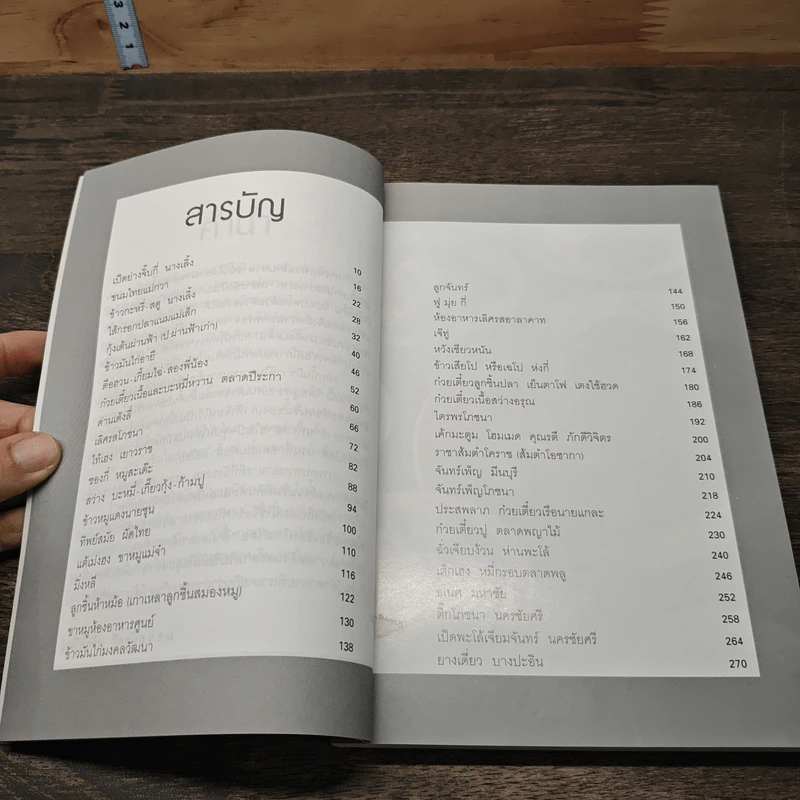 3 2 1
สารบัญ
เป็ดย่างจิ๊บกี่ นางเลิ้ง 10
ขนมไทยแม่กวา 16
ข้าวกะหรี่-สตู นางเลิ้ง 22
ไส้กรอกปลาแนมแม่เล็ก 28
กุ้งเต้นผ่านฟ้า (ป.ผ่านฟ้าเก่า) 32
ข้าวมันไก่อายี 40
ตือฮวน-เกี้ยมไฉ่-สองพี่น้อง 46
ก๋วยเตี๋ยวเนื้อและบะหมี่หวาน ตลาดปีระกา 52
ต่านเต้งลี่ 60
เลิศรสโภชนา 66
ไท้เฮง เยาวราช 72
ซองกี่ หมูสะเต๊ะ 82
สว่าง บะหมี่-เกี๊ยวกุ้ง-ก้ามปู 88
ข้าวหมูแดงนายชุน 94
ทิพย์สมัย ผัดไทย 100
แต้เม่งฮง ขาหมูแม่จ๋า 110
มิ่งหลี 116
ลูกชิ้นห้าหม้อ (เกาเหลาลูกชิ้นสมองหมู) 122
ขาหมูห้องอาหารศูนย์ 130
ข้าวมันไก่มงคลวัฒนา 138
ลูกจันทร์ 144
ฟู มุ่ย กี่ 150
ห้องอาหารเลิศรสอาลาคาท 156
เจ๊ทู่ 162
หวังเชียวหนัน 168
ข้าวเสียโป หรือเฉโป ห่งกี่ 174
ก๋วยเตี๋ยวลูกชิ้นปลา เย็นตาโฟ เตงใช้ฮวด 180
ก๋วยเตี๋ยวเนื้อสว่างอรุณ 186
ไตรพรโภชนา 192
เค้กมะตูม โฮมเมด คุณรตี ภักดีวิจิตร 200
ราชาส้มตำโคราช (ส้มตำโอซากา) 204
จันทร์เพ็ญ มีนบุรี 210
จันทร์เพ็ญโภชนา 218
ประสพลาภ ก๋วยเตี๋ยวเรือนายแกละ 224
ก๋วยเตี๋ยวปู ตลาดพญาไม้ 230
ฉั่วเจียบง้วน ห่านพะโล้ 240
เต็กเฮง หมี่กรอบตลาดพลู 246
อเนศ มหาชัย 252
ติ๊กโภชนา นครชัยศรี 258
เป็ดพะโล้เจียมจันทร์ นครชัยศรี 264
ยางเดี่ยว บางปะอิน 270